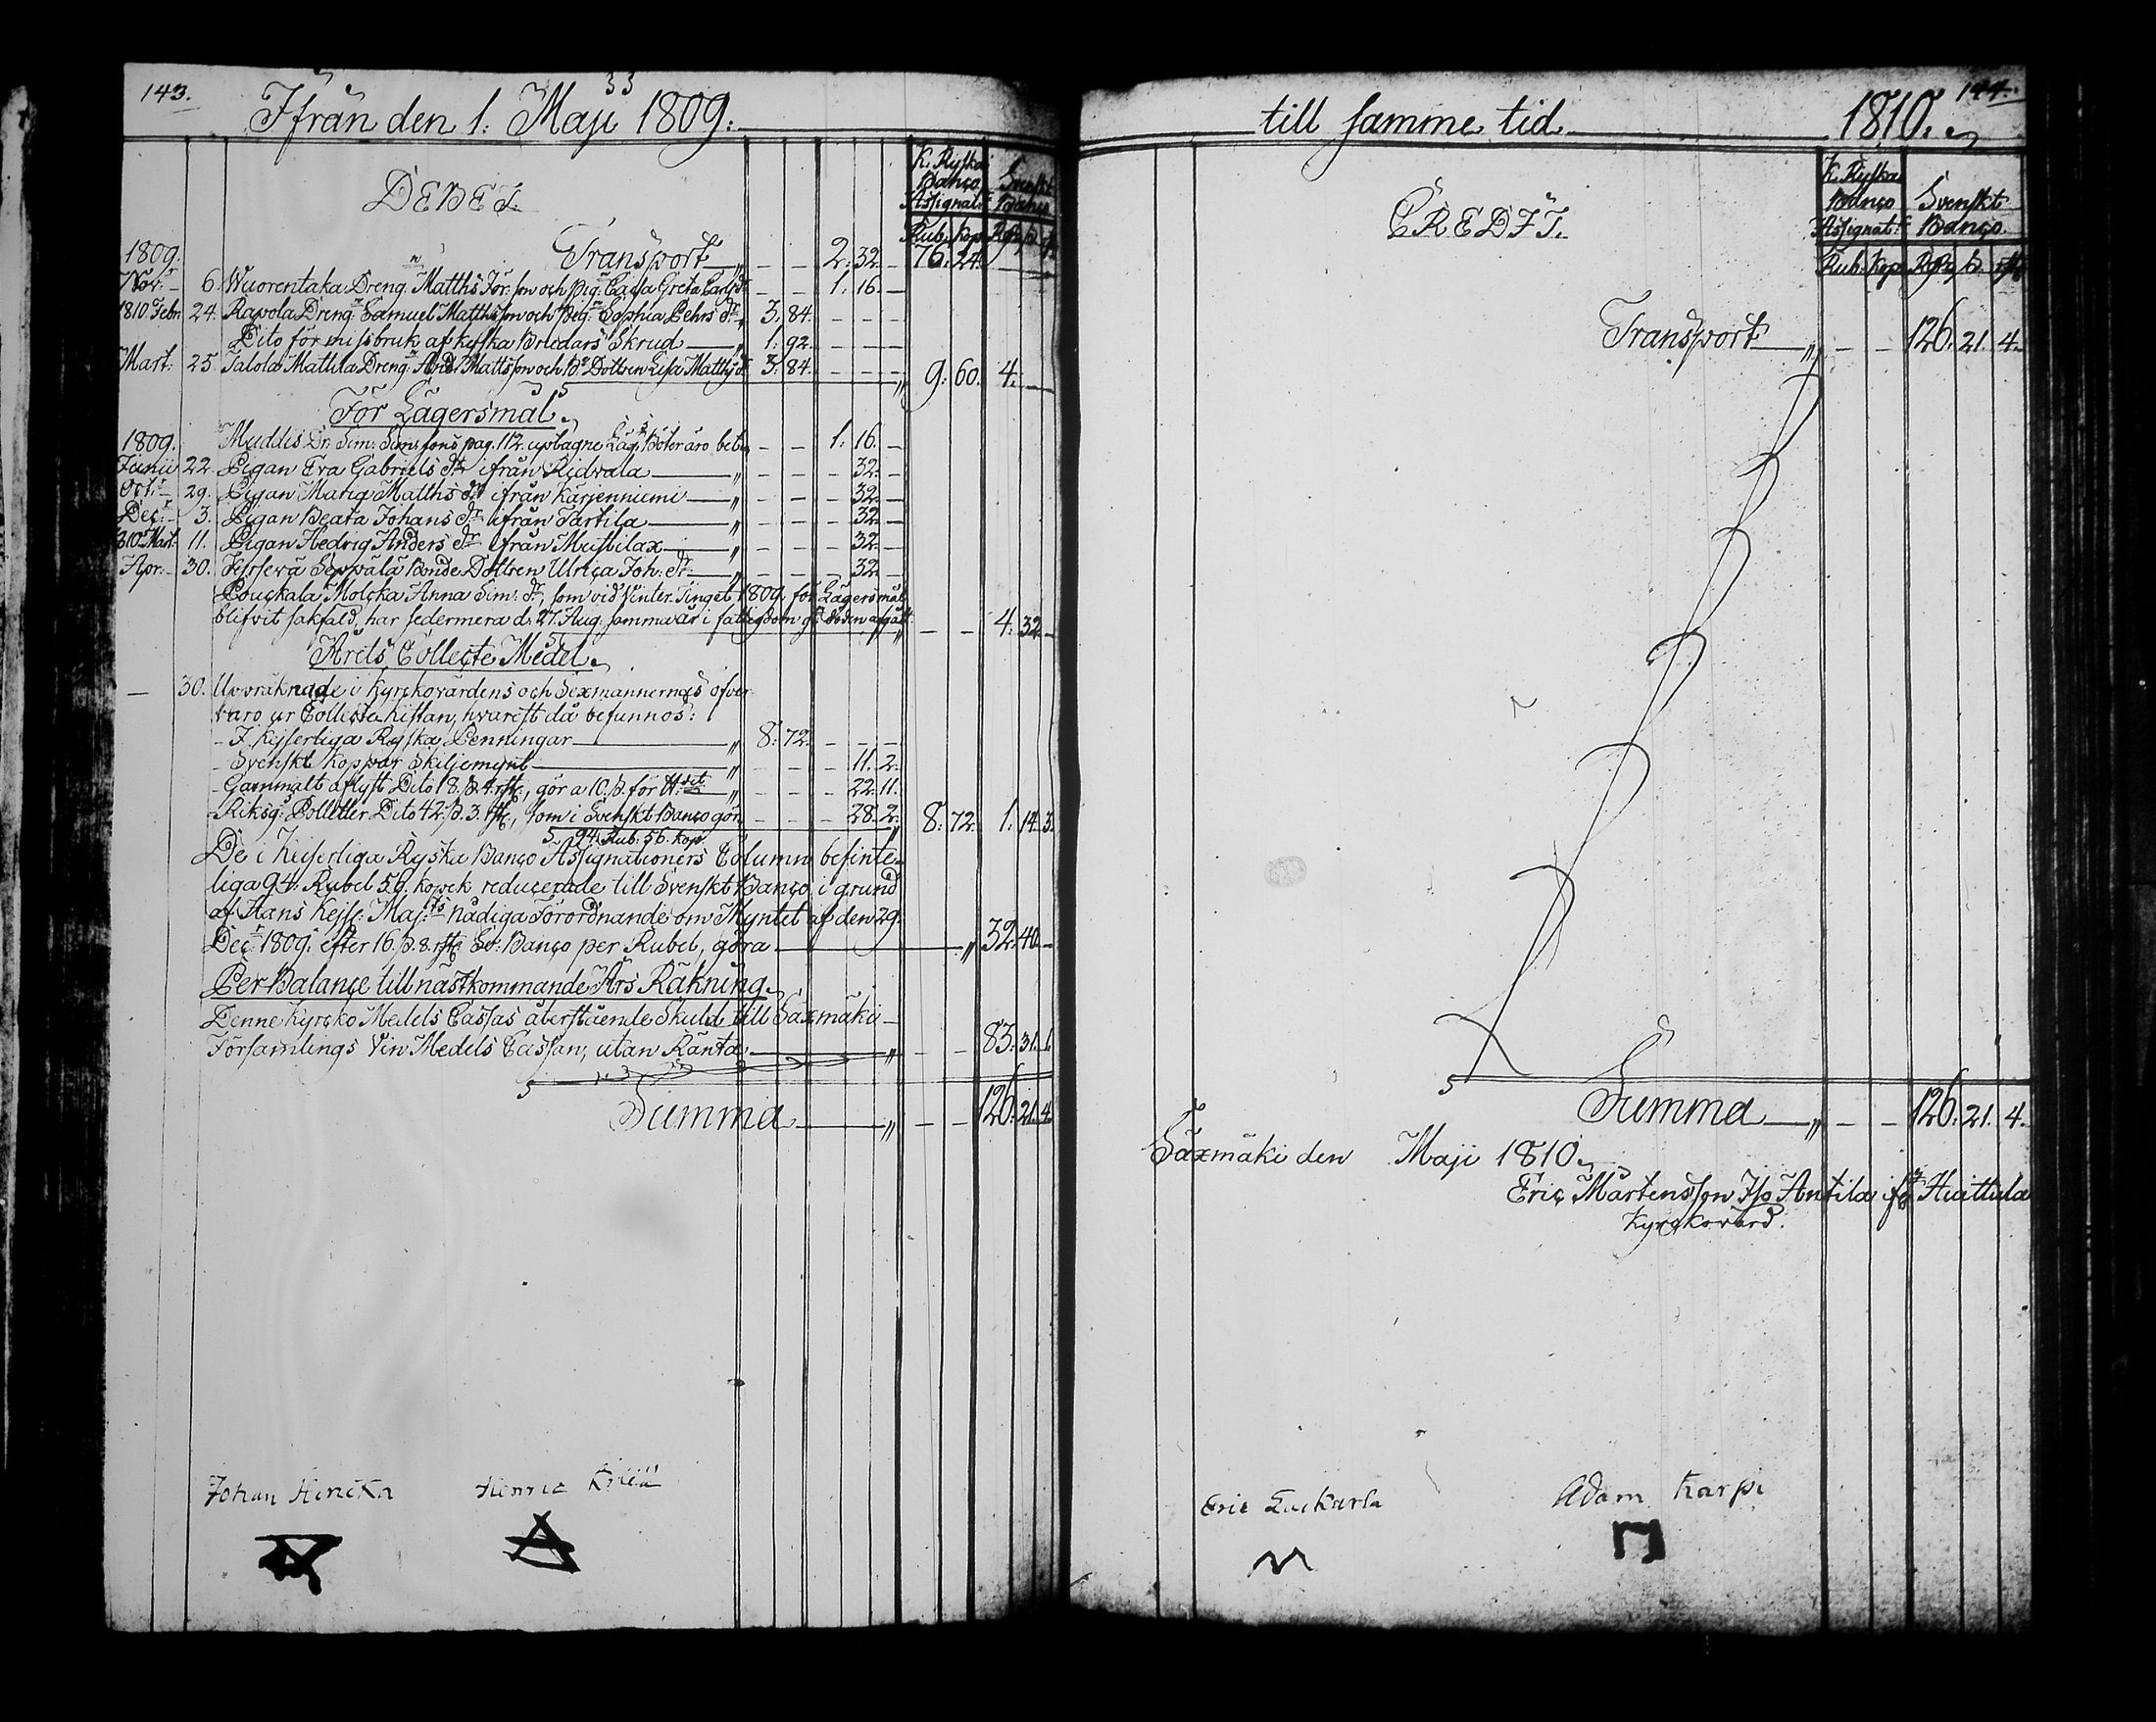 143.
Ifrån den 1. Maji 1809.
K. Ryska Banco Assignat.r
Svenskt Banco
DEBET.
Rub. Kop. Rdr ß. rst.
1809. Transport — 2. 32. — 76. 24.
Nov.r 6. Wuorentaka Dreng.n Matths Jör. son och pig. Caisa Greta Carls dr — 1. 16. —
1810 Febr. 24. Rapola Dreng.n Samuel Matthsson och Pig.n Sophia Pehrs dr „ 3. 84. — — —
Dito för missbruk af kyska Brudars Skrud „ 1. 92. — — —
Mart. 25. Jalola Mattila Dreng.n And. Mattsson och B.e Dottren Lisa Matths dr 3. 84. — — — „ 9. 60. 4. —
För Lägersmål.
1809. Muddis Dr. Sim. Simssons pag. 112. uptagne Läg.s Böter äro bet. „ — — 1. 16. —
Junii 22. Pigan Eva Gabriels dr ifrån Ridvala „ — — — 32. —
Oct.r 29. Pigan Maria Matths dr ifrån Kärjenniemi „ — — — 32. —
Dec.r 3. Pigan Beata Johans dr ifrån Tartila „ — — — 32. —
810 Mart. 11. Pigan Hedvig Anders dr ifrån Mustilax „ — — — 32. —
Apr. 30. Seppälä Bonde Dottren Ulrica Joh. dr „ — — — 32. —
Pouckala Molcka Anna Sim. dr, som vid Vinter Tinget 1809. för Lägersmål
blifvit sakfäld, har sedermera d. 27. Aug. samma år i fattigdom g.m döden afgått „ — — 4. 32. —
Årets Collecte Medel.
— 30. Uppräknade i kyrckovärdens och Sexmannernes öfver-
varo ur Collecte kistan, hvarest då befunnos:
- I. Kejserliga Ryska Penningar „ 8. 72. — — —
- Svenskt Koppar Skiljemynt „ — — — 11. 2.
- Gammalt aflyst Dito 18. ß. 4. rst., gör a 10. ß. för „ — — — 22. 11.
- Riksg.s Polletter Dito 42. ß. 3. rst., som i Svenskt Banco gör „ — — — 28. 2. „ 8. 72. 1. 14. 3.
94. Rub. 56. kop.
De i Keiserliga Ryska Banco Assignationers Column befinte-
liga 94. Rubel 56. kopek reducerade till Svenskt Banco i grund
af Hans Kejs. Maj:ts nådiga Förordnande om Myntet af den 29.
Dec.r 1809. efter 16. ß. 8. rst. Sv. Banco per Rubel, göra „ 32. 40. —
Per Balance till nästkommande Års Räkning.
Denne Kyrcko Medels Cassas återstående Skuld till Säxmäki
Församlings Vin Medels Cassan, utan Ränta „ — — 83. 31. 1.
Summa „ — — 126. 21. 4.
Johan Hincka Henric Killiä
144.
till samme tid 1810.
K. Ryska Banco Assignat.r
Svenskt Banco.
CREDIT.
Rub. Kop. Rdr ß. rst.
Transport „ — — 126. 21. 4.
Summa „ — — 126. 21. 4.
Säxmäki den Maji 1810.
Eric Mårtensson Iso Antila ifr. Huittula
Kyrckovärd.
Eric Adam Karpi